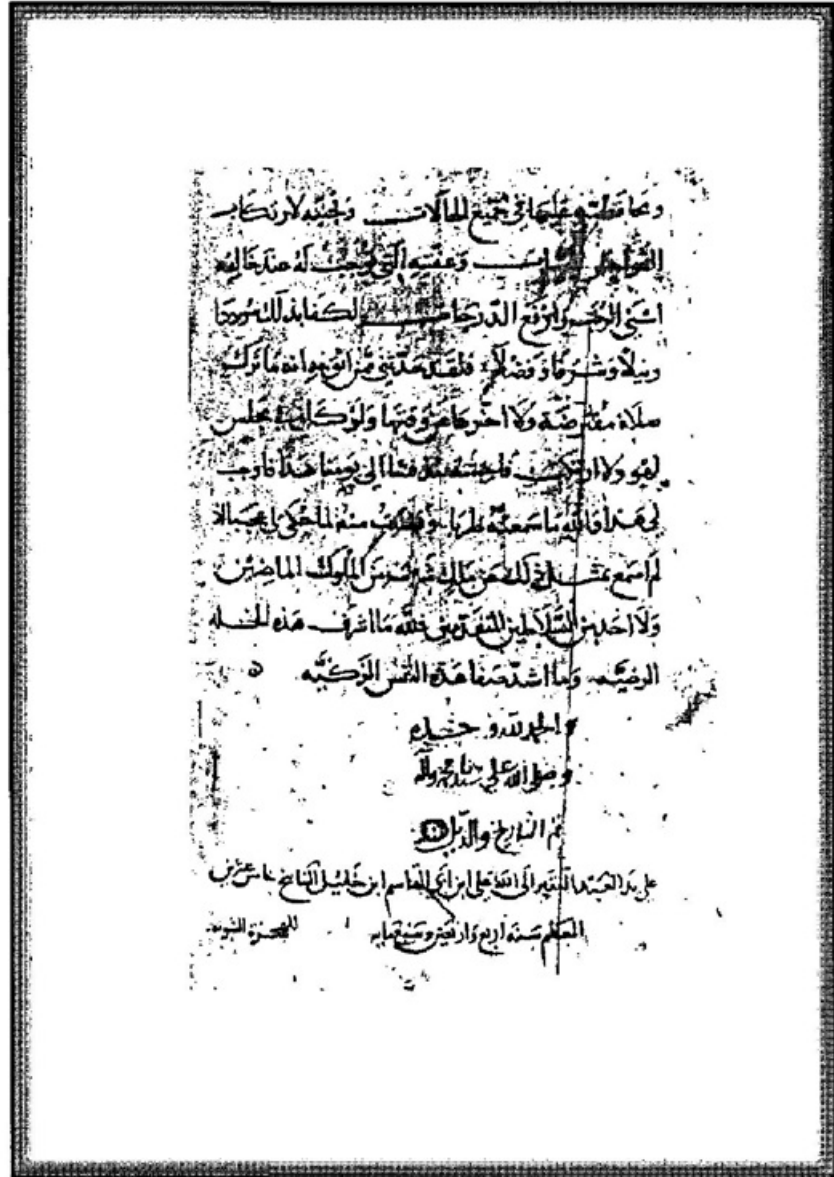 ومحافظته عليها في جميع الحالات وتجنبه لارتكاب
الفواحش وعفته التي توجب له عند خالقه
اسنى الرتب وارفع الدرجات لكفا بذلك سوددا
ونبلا وشرفا وفضلا فلقد حدثني من اثق به انه ما ترك
صلاة مفترضة ولا اخرها عن وقتها ولو كان في مجلس
لهو ولا ارتكب فاحشة الى يومنا هذا
لي هذا والله ما سمعته طربا منه لما حكي لي عجبا اذ
لم اسمع بمثل ذلك عن ملك من الملوك الماضين
ولا احد من السلاطين المتقدمين فلله ما اشرف هذه الخلة
الرضيه وما اشد صفا هذه النفس الزكيه
والحمد لله وحده
وصلى الله على سيدنا محمد واله
تم التاريخ والذيل
على يد العبد الفقير الى الله علي ابن ابي القاسم ابن خليل الناسخ
المعظم سنه اربع واربعين وسبعمايه للهجرة النبويه